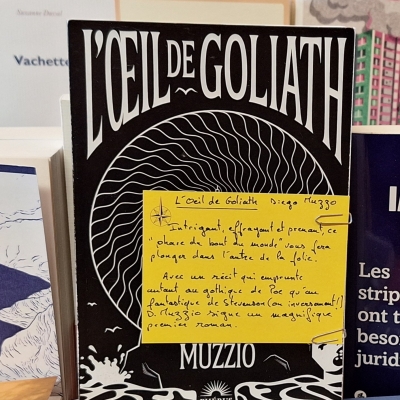 Vachette
L'ŒIL DE GOLIATH
L'Oeil de Goliath Diego Muzzo
Intrigant, effrayant et prenant, ce
"phare du bout du monde" vous fera
plonger dans l'antre de la folie.
Avec un récit qui emprunte
autant au gothique de Poe qu'au
fantastique de Stevenson (ou inversement!)
D. Muzzio signe un magnifique
premier roman.
MUZZIO
Les
strip
ont t
beso
jurid